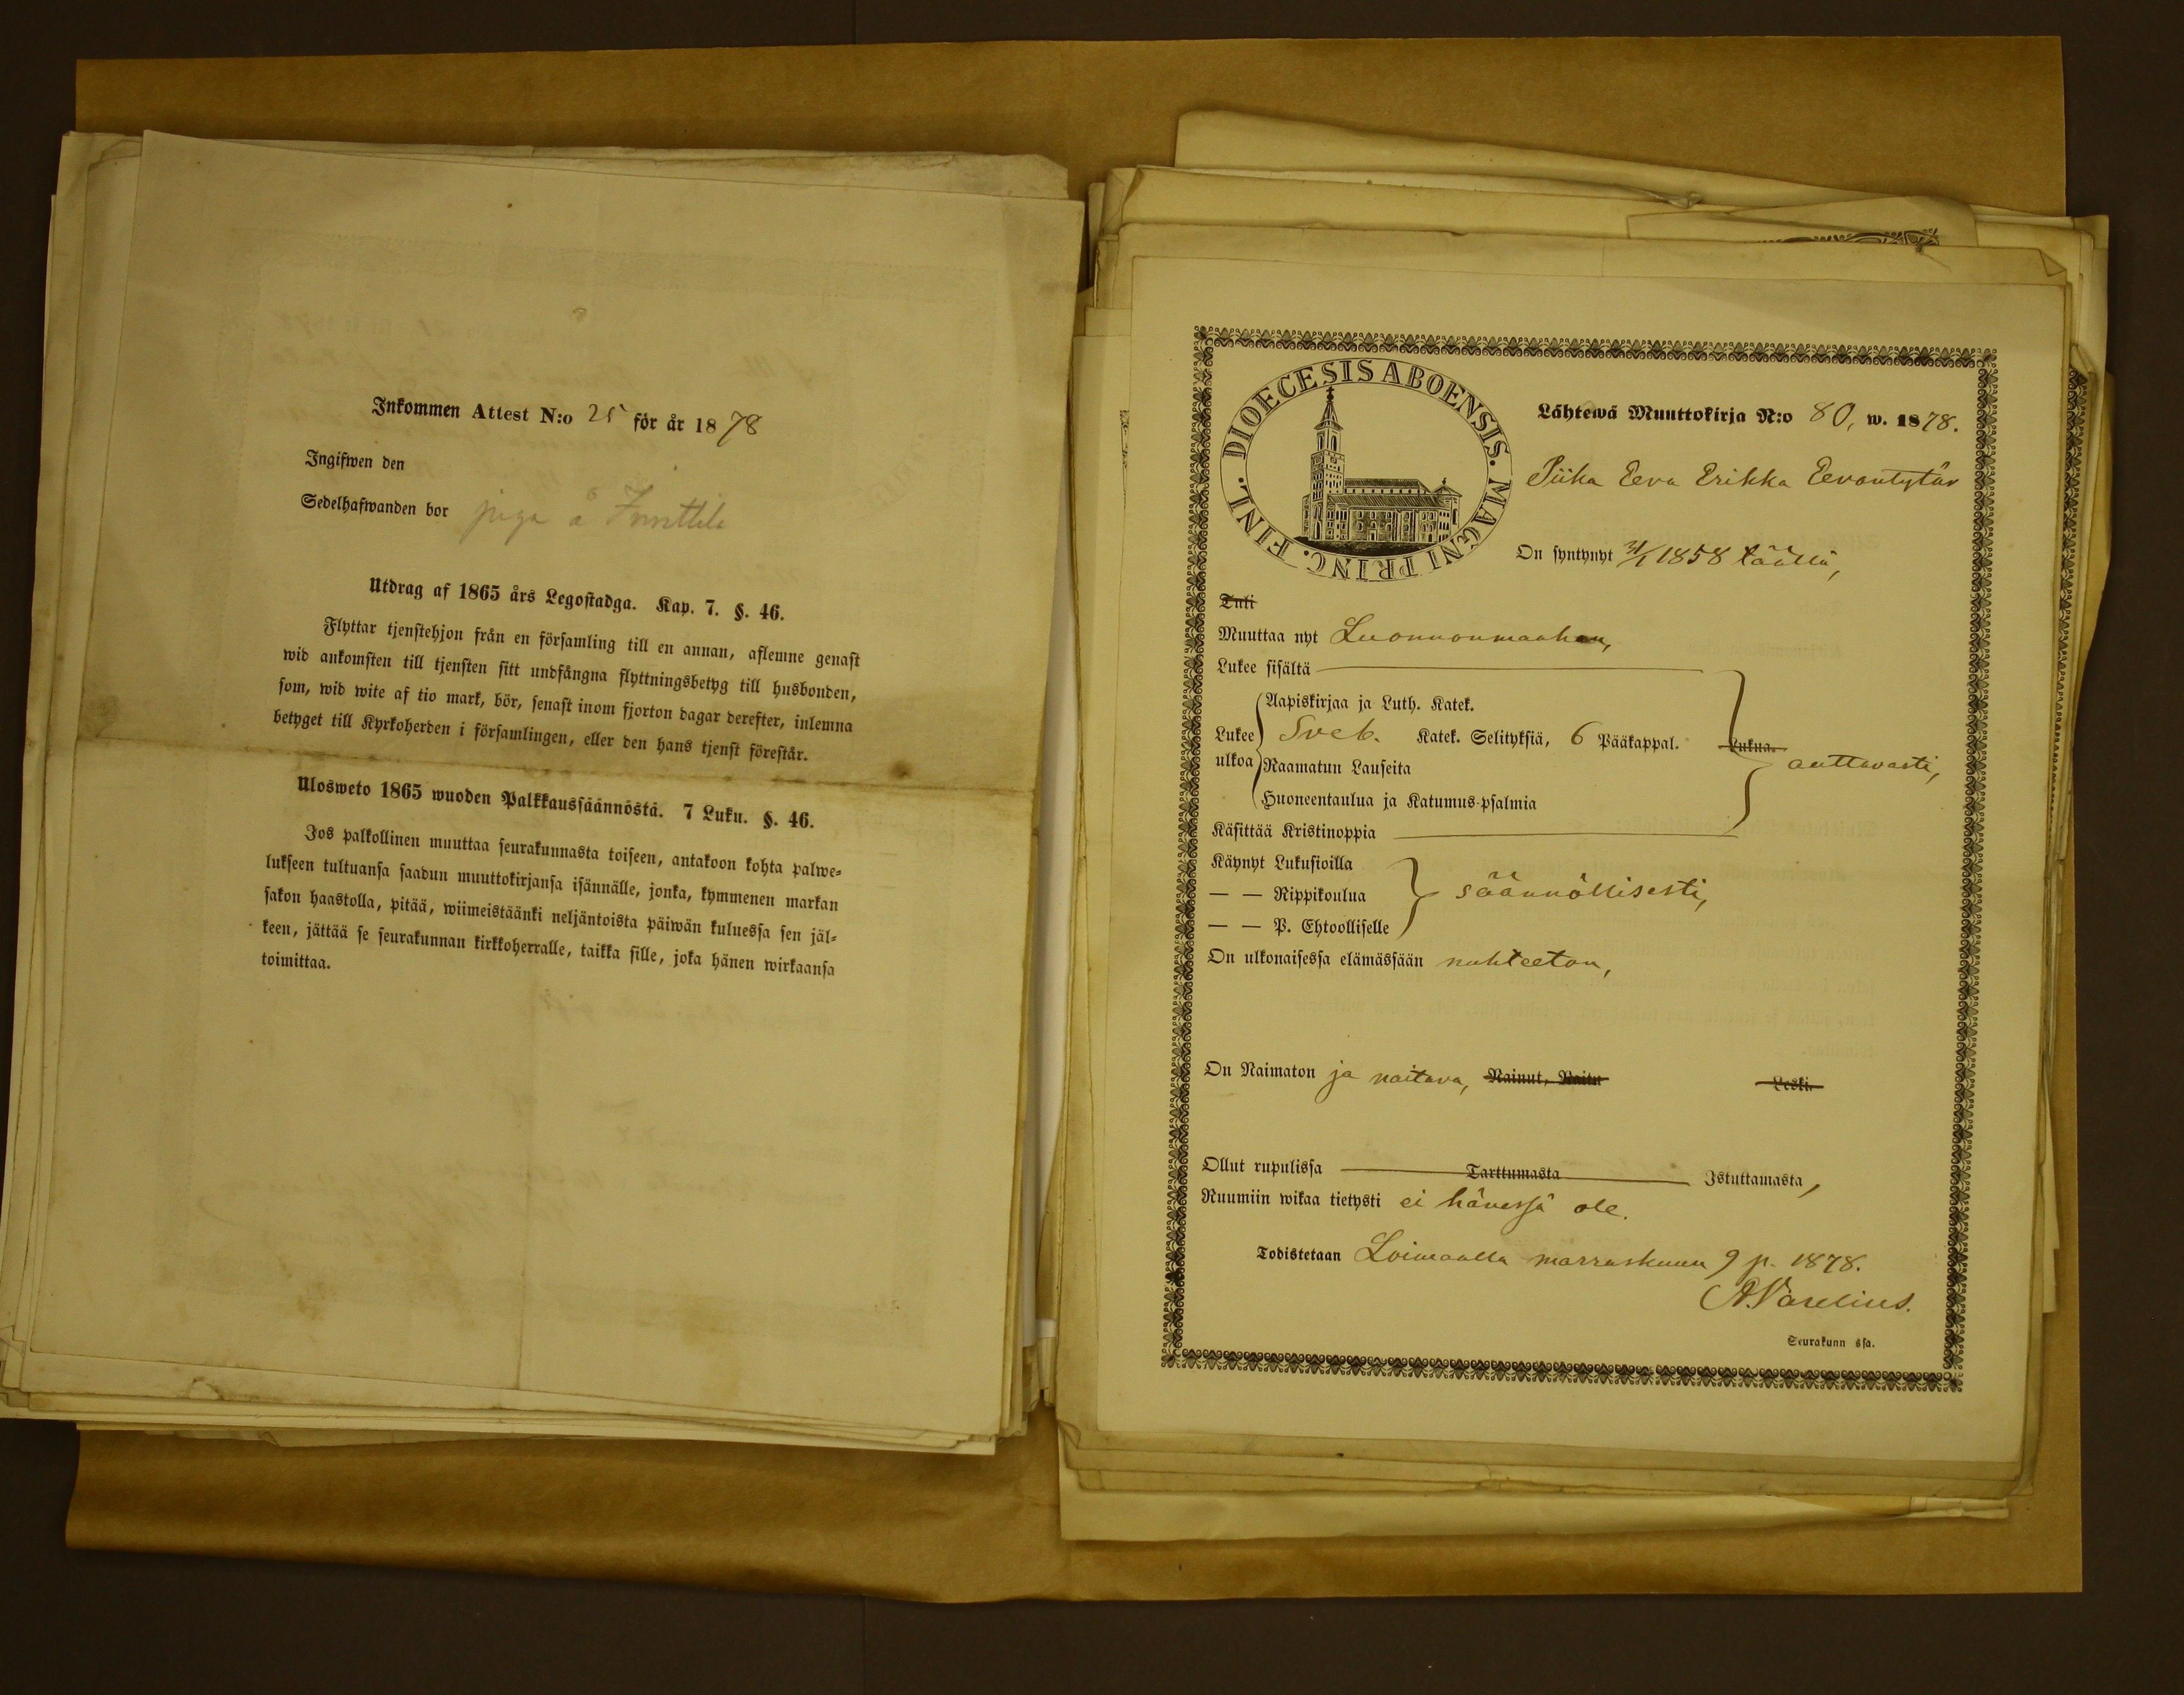 Inkommen Attest N:o 25 för år 1878
Ingifwen den
Sedelhafwanden bor piga å
Utdrag af 1865 års Legostadga. Kap. 7. §. 46.
Flyttar tjenstehjon från en församling till en annan, aflemne genast
wid ankomsten till tjensten sitt undfångna flyttningsbetyg till husbonden,
som, wid wite af tio mark, bör, senast inom fjorton dagar derefter, inlemna
betyget till Kyrkoherden i församlingen, eller den hans tjenst förestår.
Ulosweto 1865 wuoden Palkkaussäännöstä. 7 Luku. §. 46.
Jos palkollinen muuttaa seurakunnasta toiseen, antakoon kohta palwe-
lukseen tultuansa saadun muuttokirjansa isännälle, jonka, kymmenen markan
sakon haastolla, pitää, wiimeistäänki neljäntoista päiwän kuluessa sen jäl-
keen, jättää se seurakunnan kirkkoherralle, taikka sille, joka hänen wirkaansa
toimittaa.
DIOECESIS ABOENSIS. MAGNI PRINC. FINL.
Lähtewä Muuttokirja N:o 80, w. 1878.
Piika Eeva Erikka Eevantytär
On syntynyt 1858 täällä,
Tuli
Muuttaa nyt Luonnonmaahan,
Lukee sisältä
Lukee ulkoa
Aapiskirjaa ja Luth. Katek.
Sveb. Katek. Selityksiä, 6 Pääkappal. Lukua.
Raamatun Lauseita
Huoneentaulua ja Katumus-psalmia
auttavasti,
Käsittää Kristinoppia
Käynyt Lukusioilla
— — Rippikoulua säännöllisesti,
— — P. Ehtoolliselle
On ulkonaisessa elämässään nuhteeton,
On Naimaton ja naitava, Nainut, Naitu Leski.
Ollut rupulissa Tarttumasta Istuttamasta,
Ruumiin wikaa tietysti ei hänessä ole.
Todistetaan Loimaalla marraskuun 9 p. 1878.
Seurakunn ssa.